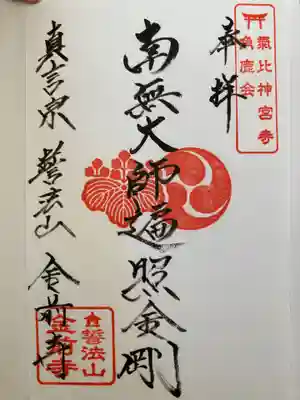 氣比神宮寺
奉拝
南無大師遍照金剛
真言宗 誓法山 金前寺
誓法山
金前寺